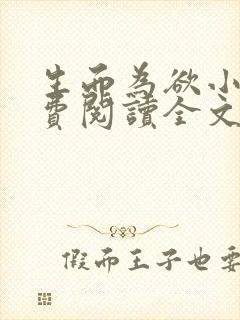 生而為欲小
費閱讀全文
假而王子也要